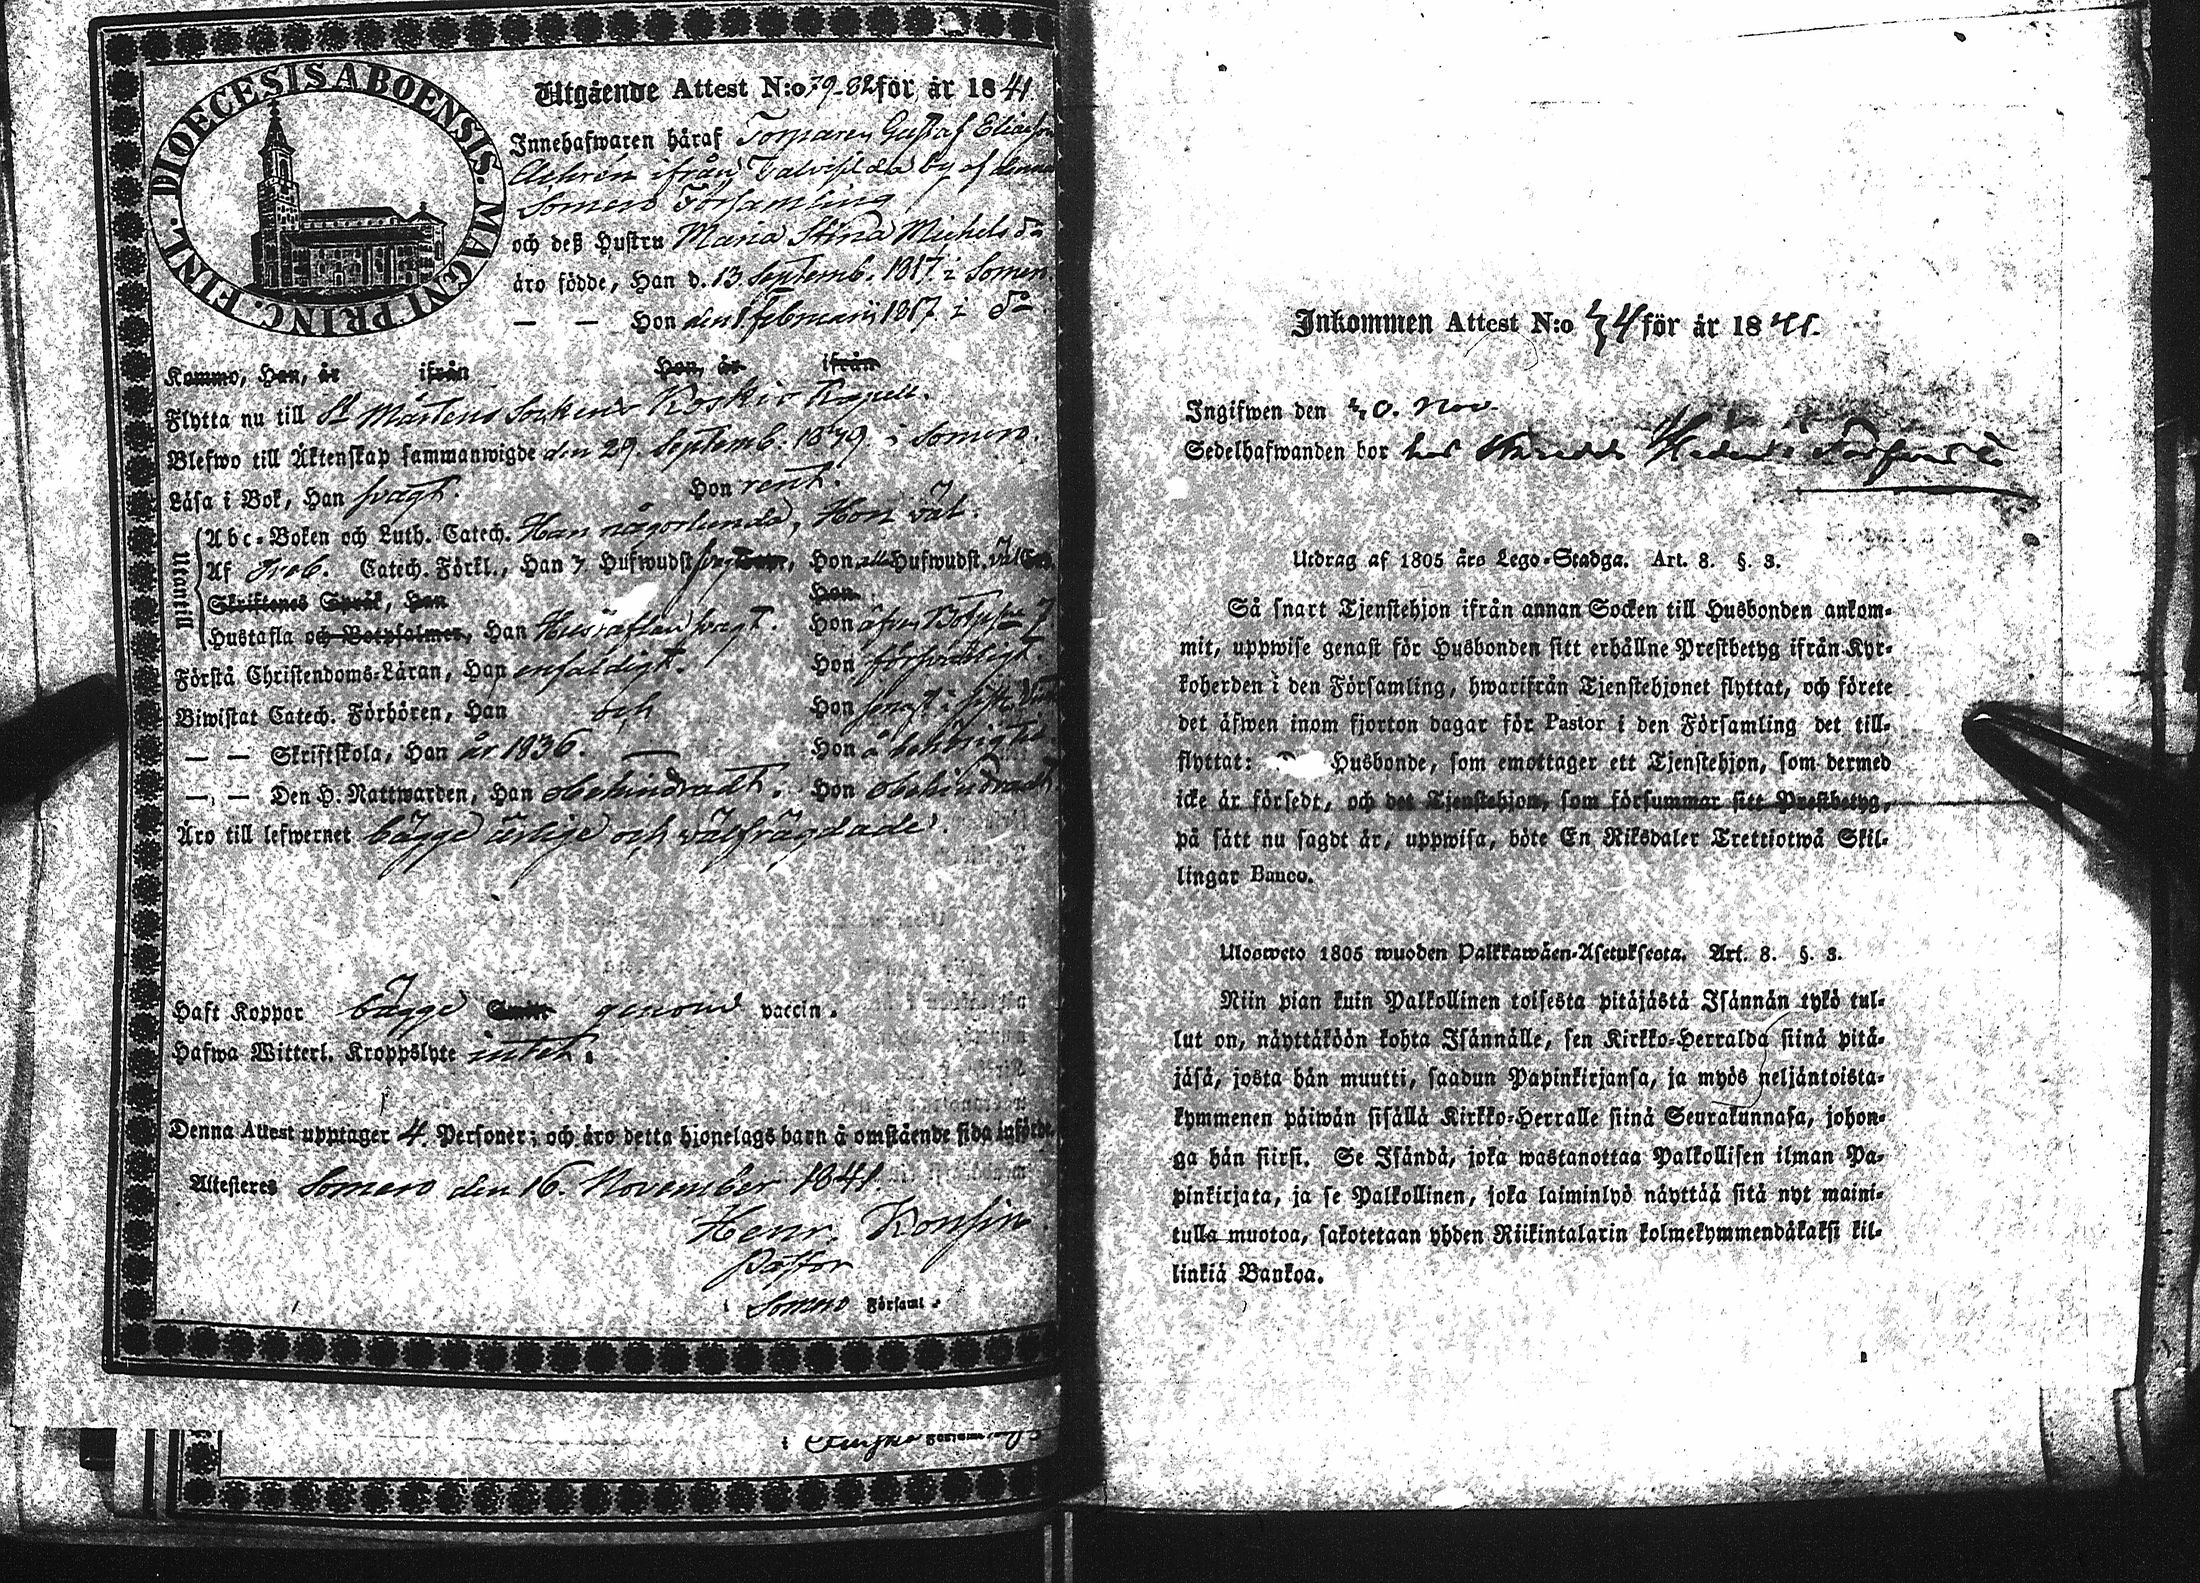 DIOECESIS ABOENSIS. MAGNI PRINC. FINL.
Utgående Attest N:o 79-82 för år 1841.
Innehafwaren häraf Torparen Gustaf Eliasson
ifrån by af denna
Somero Församling
och deß Hustru Maria Stina Michels dr
äro födde, Han d. 13 Septemb. 1817 i Somero
— — Hon den 1 Februarii 1817 i do
Kommo, Han, år ifrån Hon, år ifrån
Flytta nu till St Mårtens Socken Koskis Kapell.
Blefwo till Äktenskap sammanwigde den 29 Septemb. 1839 i Somero.
Läsa i Bok, Han svagt. Hon rent.
Utanill
Abc-Boken och Luth. Catech. Han någorlunda, Hon väl.
Af Sveb. Catech. Förkl., Han 7 Hufwudst. Hon alla Hufwudst. väl
Skriftenes Språk, Han Hon
Hustafla och Botpsalmer, Han Hustaflan svagt. Hon äfven Botps. 7
Förstå Christendoms-Läran, Han enfaldigt. Hon försvarligt.
Biwistat Catech. Förhören, Han och Hon
— — Skriftskola, Han år 1836. — Hon å behörig tid
— — Den H. Nattwarden, Han obehindradt. Hon obehindradt
Äro till lefwernet bägge ärlige och välfrägdade.
Haft Koppor bägge Smitt genom vaccin.
Hafwa Witterl. Kroppslyte intet.
Denna Attest upptager 4. Personer; och äro detta hjonelags barn å omstående sida införde.
Attesteres Somero den 16. November 1841.
Henr. Konsin
Pastor
i Somero Församl.
i Församling
Inkommen Attest N:o 34 för år 1841.
Ingifwen den 20. Nov.
Sedelhafwanden bor hos
Utdrag af 1805 års Lego-Stadga. Art. 8. §. 3.
Så snart Tjenstehjon ifrån annan Socken till Husbonden ankom-
mit, uppwise genast för Husbonden sitt erhållne Prestbetyg ifrån Kyr-
koherden i den Församling, hwarifrån Tjenstehjonet flyttat, och förete
det äfwen inom fjorton dagar för Pastor i den Församling det till-
flyttat: Husbonde, som emottager ett Tjenstehjon, som dermed
icke är försedt, och det Tjenstehjon, som försummar sitt Prestbetyg,
på sätt nu sagdt är, uppwisa, böte En Riksdaler Trettiotwå Skil-
lingar Banco.
Ulosweto 1805 wuoden Palkkawäen-Asetuksesta. Art. 8. §. 3.
Niin pian kuin Palkollinen toisesta pitäjästä Isännän tykö tul-
lut on, näyttäköön kohta Isännälle, sen Kirkko-Herralda siinä pitä-
jäsä, josta hän muutti, saadun Papinkirjansa, ja myös neljäntoista-
kymmenen päiwän sisällä Kirkko-Herralle siinä Seurakunnasa, johon-
ga hän siirsi. Se Isändä, joka wastanottaa Palkollisen ilman Pa-
pinkirjata, ja se Palkollinen, joka laiminlyö näyttää sitä nyt maini-
tulla muotoa, sakotetaan yhden Riikintalarin kolmekymmendäkaksi kil-
linkiä Bankoa.